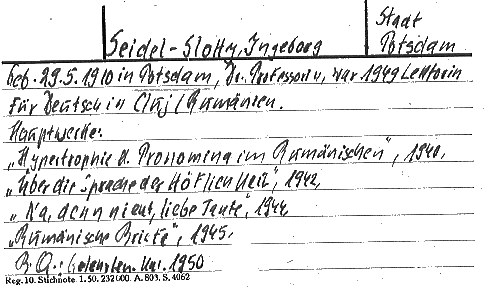 Stadt
Seidel-Slotty, Ingeborg Potsdam
Geb. 29.5.1910 in Potsdam, Dr. Professorin, war 1949 Lektorin
für Deutsch in Cluj/Rumänien.
Hauptwerke:
„Hypertrophie d. Pronomina im Rumänischen", 1940,
„Über die Sprache der Höflichkeit", 1942,
„Na, denn nicht, liebe Tante", 1944,
„Rumänische Briefe", 1945.
1950
Reg. 10. Stichnote. 1. 50. 232 000. A. 803. S. 4062